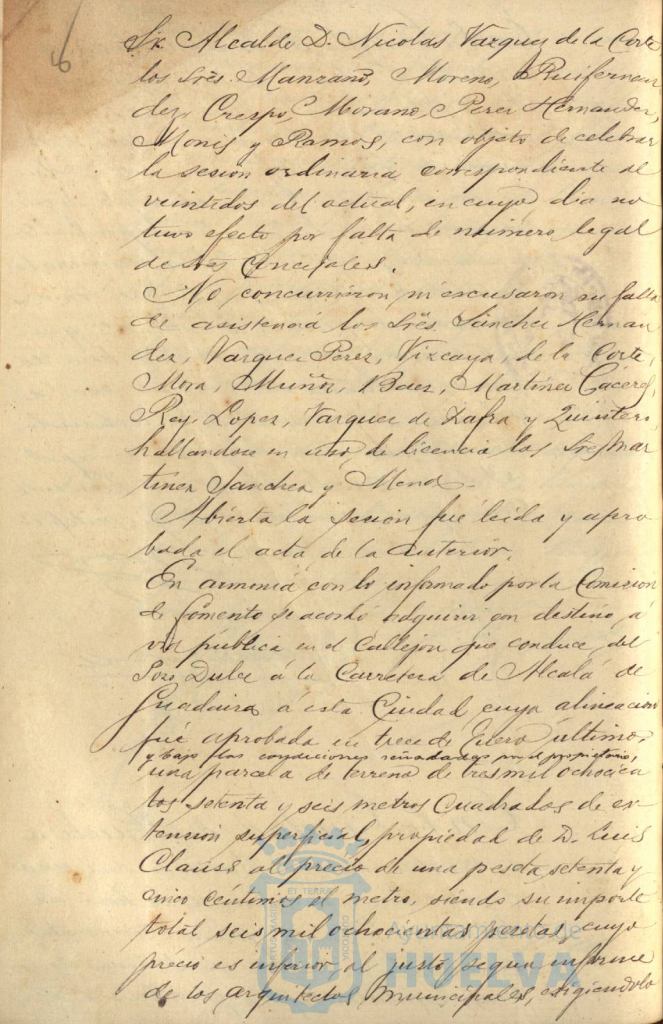 6
Sr. Alcalde D. Nicolas Vazquez de la Corte
los Sres. Manzano, Moreno, Ruifernan
dez, Crespo, Morano, Perez Hernandez,
Monis y Ramos, con objeto de celebrar
la sesion ordinaria correspondiente al
veintidos del actual, en cuyo dia no
tuvo efecto por falta de número legal
de Sres Concejales.
No concurrieron ni escusaron su falta
de asistencia los Sres. Sanchez Hernan
dez, Vazquez Perez, Vizcaya, de la Corte,
Mora, Muñoz, Baez, Martinez Caceres,
Rey, Lopez, Vazquez de Zafra y Quintero
hallandose en uso de licencia los Sres Mar
tinez Sanchez y
Abierta la sesion fué leida y apro
bada el acta de la anterior.
En armonia con lo informado por la Comision
de Fomento se acordó adquirir con destino á
via pública en el Callejon que conduce del
Pozo Dulce á la Carretera de Alcalá de
Guadaira a esta Ciudad cuya alineacion
fué aprobada en trece de Enero último,
y bajo las condiciones señaladas por el propietario,
una parcela de terreno de tres mil ochocien
tos setenta y seis metros cuadrados de ex
tension superficial, propiedad de D. Luis
Clauss al precio de una peseta setenta y
cinco céntimos el metro, siendo su importe
total seis mil ochocientas pesetas, cuyo
precio es inferior al justo, segun informe
de los arquitectos municipales, exigiendolo
Ayuntamiento de
HUELVA